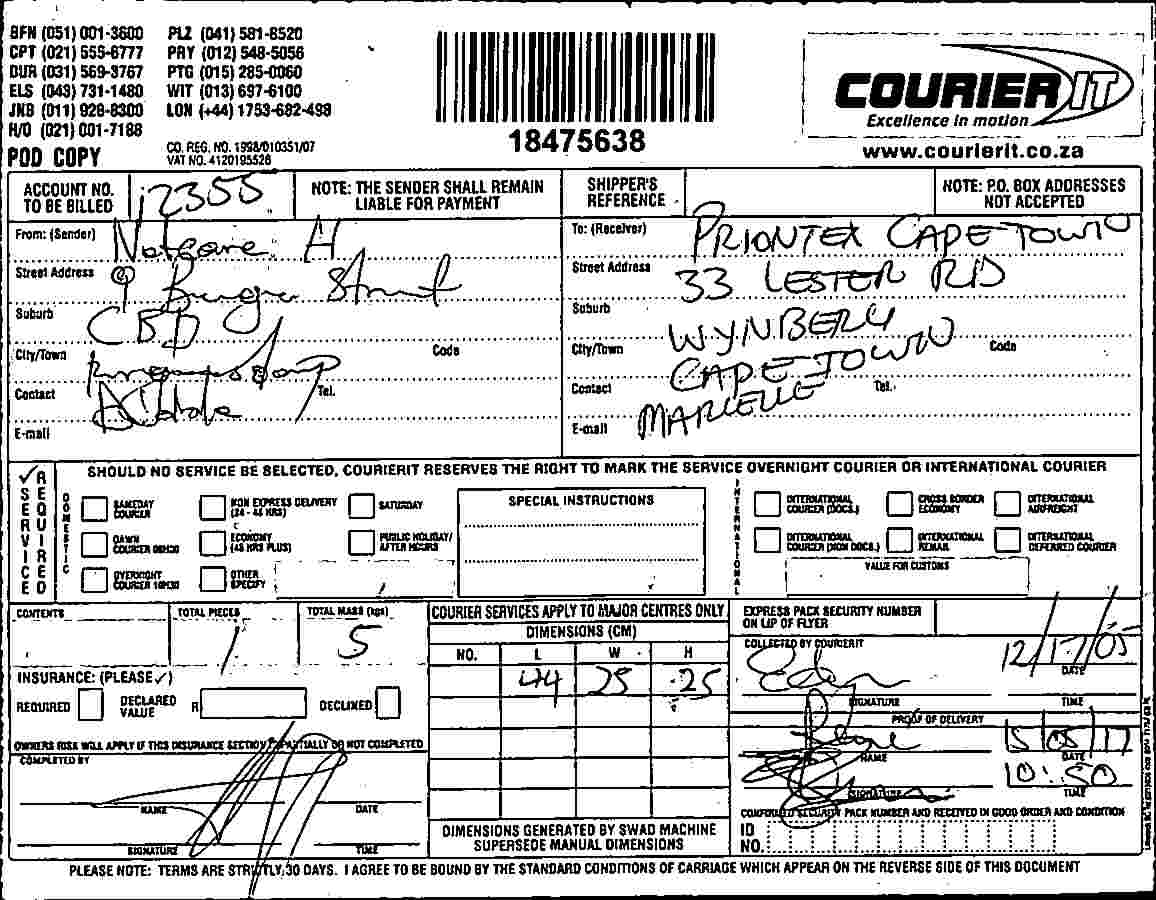 BFN (051) 001-3600 PLZ (041) 581-8520
CPT (021) 555-6777 PRY (012) 548-5056
DUR (031) 569-3767 PTG (015) 285-0060
ELS (043) 731-1480 WIT (013) 697-6100
JNB (011) 928-8300 LON (+44) 1753-682-498
H/O (021) 001-7188
POD COPY
CO. REG. NO. 1998/010351/07
VAT NO. 4120195526
18475638
COURIER IT
Excellence in motion
www.courierit.co.za
ACCOUNT NO. TO BE BILLED 12355
NOTE: THE SENDER SHALL REMAIN LIABLE FOR PAYMENT
SHIPPER'S REFERENCE
NOTE: P.O. BOX ADDRESSES NOT ACCEPTED
From: (Sender) Netcare
Street Address 9 Burger Street
Suburb CBD
City/Town Code
Contact Tel.
E-mail
To: (Receiver) PRIONTEX CAPE TOWN
Street Address 33 LESTER RD
Suburb WYNBERG
City/Town CAPE TOWN Code
Contact MARCELLE Tel.
E-mail
✓ SERVICE REQUIRED
SHOULD NO SERVICE BE SELECTED, COURIERIT RESERVES THE RIGHT TO MARK THE SERVICE OVERNIGHT COURIER OR INTERNATIONAL COURIER
DOMESTIC
SAMEDAY COURIER
NON EXPRESS DELIVERY (24 - 48 HRS)
SATURDAY
DAWN COURIER 08H30
ECONOMY (48 HRS PLUS)
PUBLIC HOLIDAY/ AFTER HOURS
OVERNIGHT COURIER 10H30
OTHER SPECIFY
SPECIAL INSTRUCTIONS
INTERNATIONAL
INTERNATIONAL COURIER (DOCS.)
CROSS BORDER ECONOMY
INTERNATIONAL AIRFREIGHT
INTERNATIONAL COURIER (NON DOCS.)
INTERNATIONAL REMAIL
INTERNATIONAL DEFERRED COURIER
VALUE FOR CUSTOMS
CONTENTS
TOTAL PIECES 1
TOTAL MASS (kgs) 5
INSURANCE: (PLEASE ✓)
REQUIRED
DECLARED VALUE R
DECLINED
OWNERS RISK WILL APPLY IF THIS INSURANCE SECTION PARTIALLY OR NOT COMPLETED
COMPLETED BY
NAME DATE
SIGNATURE TIME
COURIER SERVICES APPLY TO MAJOR CENTRES ONLY
DIMENSIONS (CM)
NO. L W H
44 25 25
DIMENSIONS GENERATED BY SWAD MACHINE
SUPERSEDE MANUAL DIMENSIONS
EXPRESS PACK SECURITY NUMBER ON LIP OF FLYER
COLLECTED BY COURIERIT
12/17/05
DATE
SIGNATURE TIME
PROOF OF DELIVERY
15/05/17
NAME DATE
10:50
SIGNATURE TIME
CONFIRMED SECURITY PACK NUMBER AND RECEIVED IN GOOD ORDER AND CONDITION
ID NO.
PLEASE NOTE: TERMS ARE STRICTLY 30 DAYS. I AGREE TO BE BOUND BY THE STANDARD CONDITIONS OF CARRIAGE WHICH APPEAR ON THE REVERSE SIDE OF THIS DOCUMENT